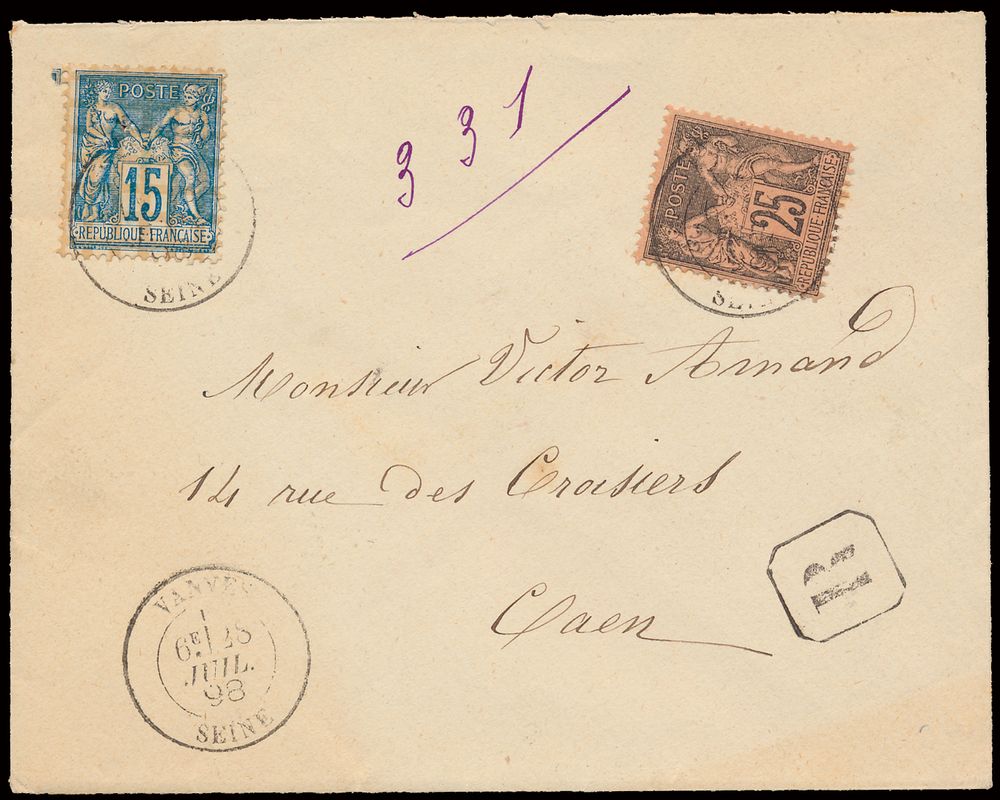 POSTE
15
REPUBLIQUE FRANÇAISE
SEINE
331
POSTE
25
REPUBLIQUE FRANÇAISE
Monsieur Victor Amand
14 rue des Croisiers
Caen
R
VANVES
6E 28
JUIL.
98
SEINE